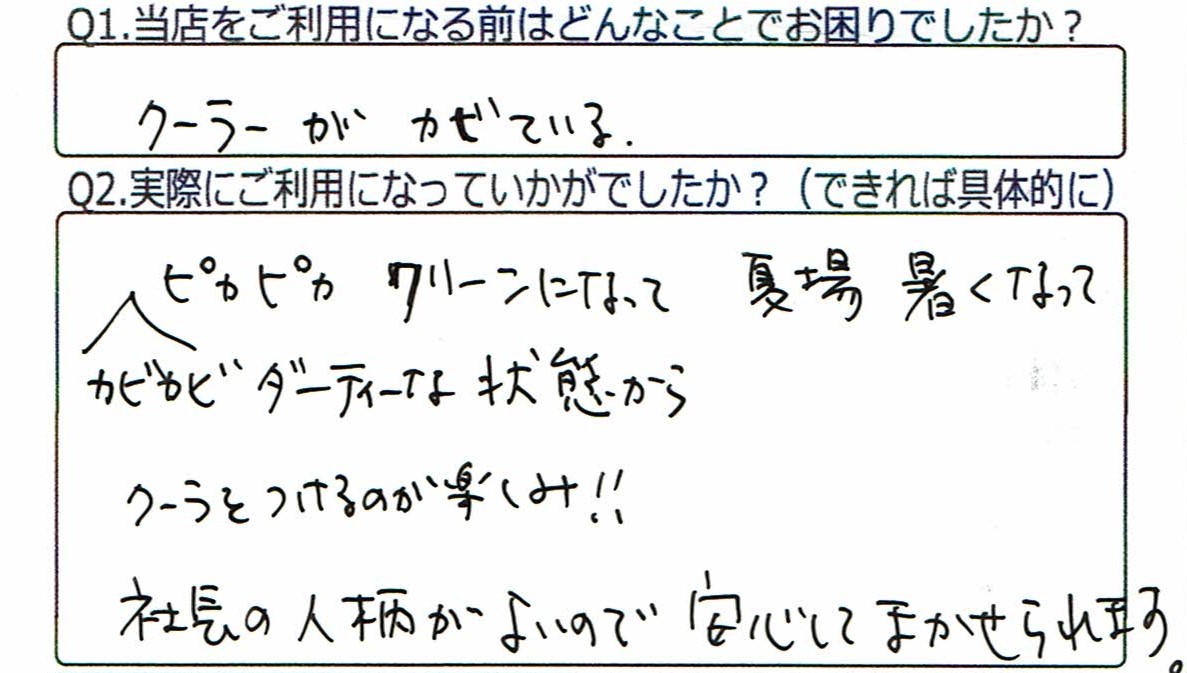 Q1.当店をご利用になる前はどんなことでお困りでしたか？
クーラーが かぜている.
Q2.実際にご利用になっていかがでしたか？（できれば具体的に）
ピカピカ クリーンになって 夏場 暑くなって
カビカビ ダーティーな 状態から
クーラをつけるのが楽しみ!!
社長の人柄がよいので 安心して まかせられます。